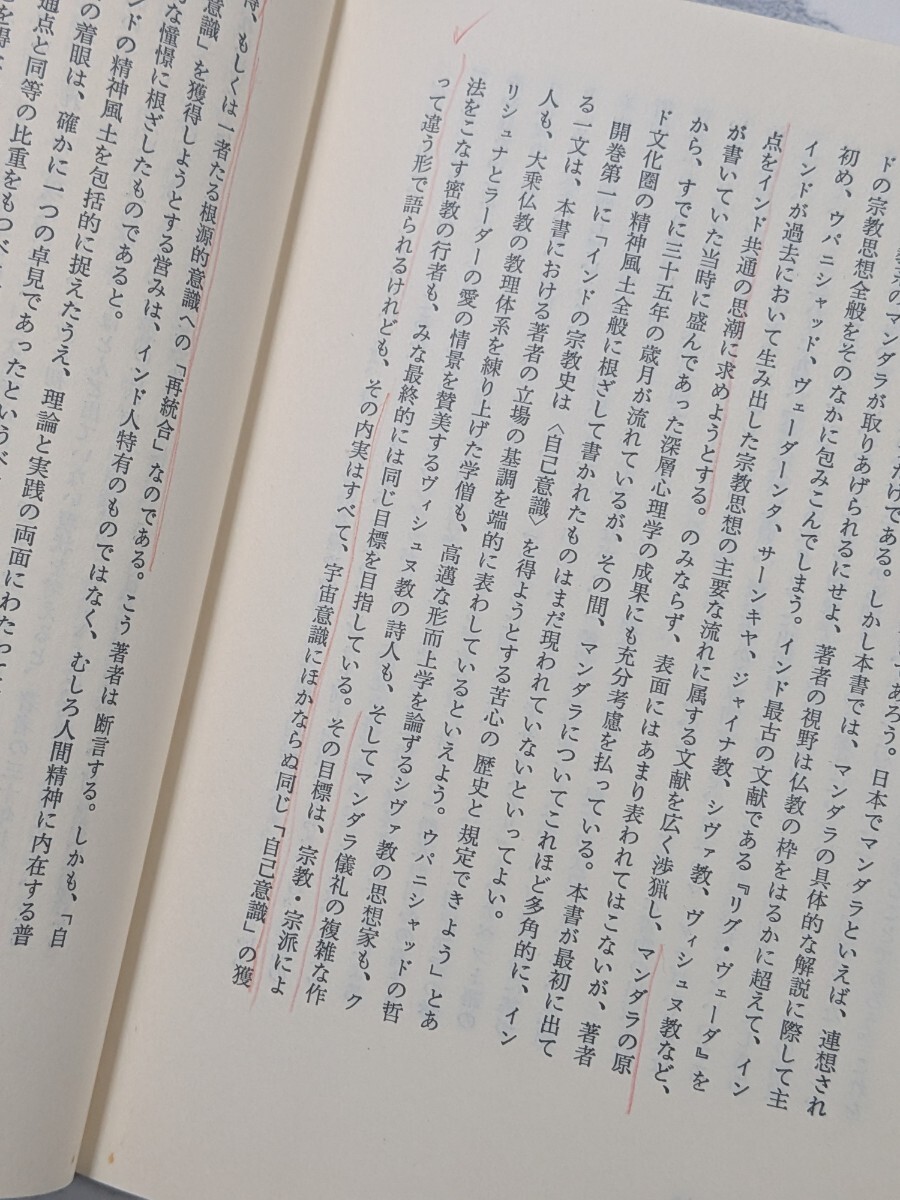 教系のマンダラが取りあげられるにせよ、著者の視野は仏教の枠をはるかに超えて、イン
だけである。しかし本書では、マンダラの具体的な解説に際して主
あろう。日本でマンダラといえば、連想され
ドの宗教思想全般をそのなかに包みこんでしまう。インド最古の文献である『リグ・ヴェーダ』を
初め、ウパニシャッド、ヴェーダーンタ、サーンキヤ、ジャイナ教、シヴァ教、ヴィシュヌ教など、
インドが過去において生み出した宗教思想の主要な流れに属する文献を広く渉猟し、マンダラの原
点をインド共通の思潮に求めようとする。のみならず、表面にはあまり表われてはこないが、著者
が書いていた当時に盛んであった深層心理学の成果にも充分考慮を払っている。本書が最初に出て
から、すでに三十五年の歳月が流れているが、その間、マンダラについてこれほど多角的に、イン
ド文化圏の精神風土全般に根ざして書かれたものはまだ現われていないといってよい。
開巻第一に「インドの宗教史は〈自己意識〉を得ようとする苦心の歴史と規定できよう」とあ
る一文は、本書における著者の立場の基調を端的に表わしているといえよう。ウパニシャッドの哲
人も、大乗仏教の教理体系を練り上げた学僧も、高邁な形而上学を論ずるシヴァ教の思想家も、ク
リシュナとラーダーの愛の情景を賛美するヴィシュヌ教の詩人も、そしてマンダラ儀礼の複雑な作
法をこなす密教の行者も、みな最終的には同じ目標を目指している。その目標は、宗教・宗派によ
って違う形で語られるけれども、その内実はすべて、宇宙意識にほかならぬ同じ「自己意識」の獲
得、もしくは一者たる根源的意識への「再統合」なのである。こう著者は断言する。しかも、「自
意識」を獲得しようとする営みは、インド人特有のものではなく、むしろ人間精神に内在する普
な憧憬に根ざしたものであると。
ンドの精神風土を包括的に捉えたうえ、理論と実践の両面にわたって
の着眼は、確かに一つの卓見であったというべ
通点と同等の比重をもつべ